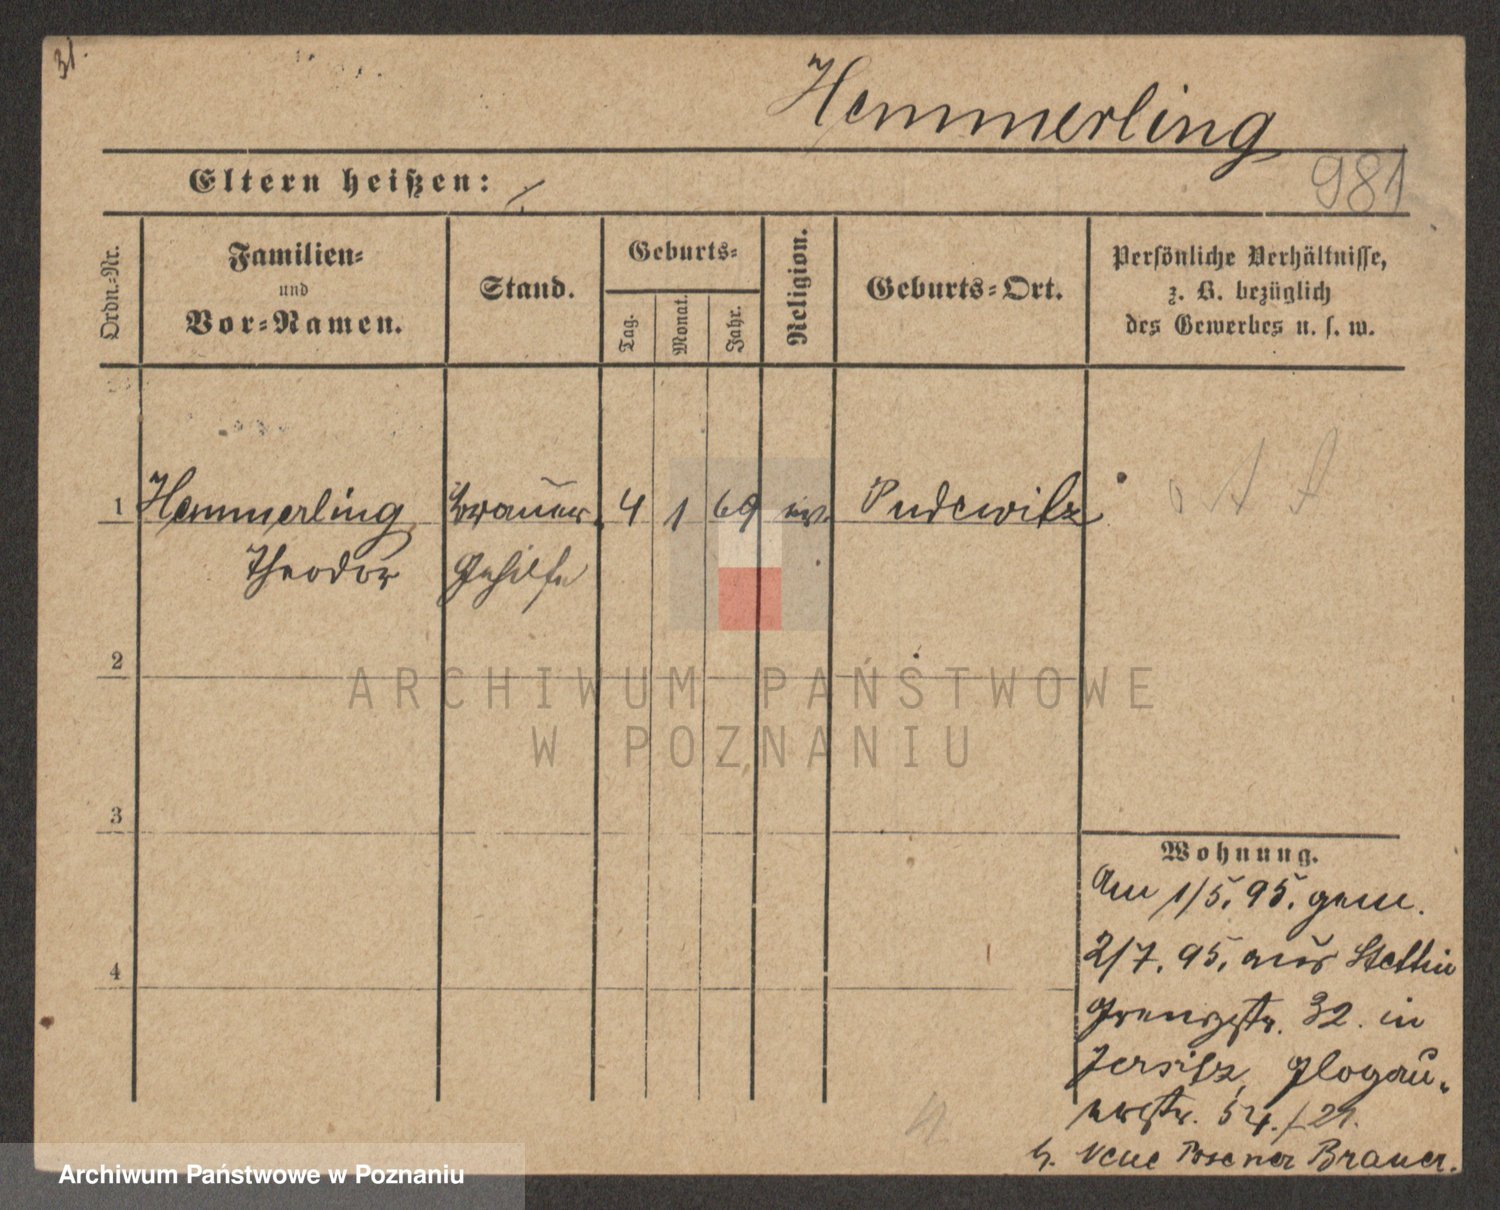 31.
Hemmerling
981
Eltern heißen:
Ordn.-Nr.
Familien-
und
Vor-Namen.
Stand.
Geburts-
Tag.
Monat.
Jahr.
Religion.
Geburts-Ort.
Persönliche Verhältnisse,
z. B. bezüglich
des Gewerbes u. s. w.
1 Hemmerling Brauer 4 1 69 ev. Pudewitz
Theodor Gehilfe
2
ARCHIWUM PAŃSTWOWE
W POZNANIU
3
4
Wohnung.
Am 1/5. 95. gem.
2/7. 95. aus Stettin
Grenzstr. 32. in
Jersitz, Glogau-
erstr. 54./21.
b. Neue Posener Brauer.
Archiwum Państwowe w Poznaniu